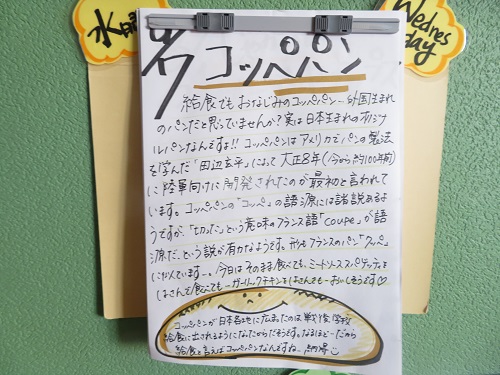 水曜
Wednesday
9/7
コッペパン
給食でもおなじみのコッペパン…外国生まれ
のパンだと思っていませんか？実は日本生まれのオリジナ
ルパンなんですよ!! コッペパンはアメリカでパンの製法
を学んだ「田辺玄平」によって大正8年(今から約100年前)
に陸軍向けに開発されたのが最初と言われて
います。コッペパンの「コッペ」の語源には諸説あるよ
うですが、「切った」という意味のフランス語「coupe」が語
源だ、という説が有力なようです。形もフランスのパン「クッペ」
に似ています…。今日はそのまま食べても、ミートソーススパゲッティを
はさんで食べても…ガーリックチキンをはさんでも…おいしそうです♡
コッペパンが日本各地に広まったのは戦後、学校
給食に出されるようになったからだそうです。なるほど…だから
給食と言えばコッペパンなんですね…納得